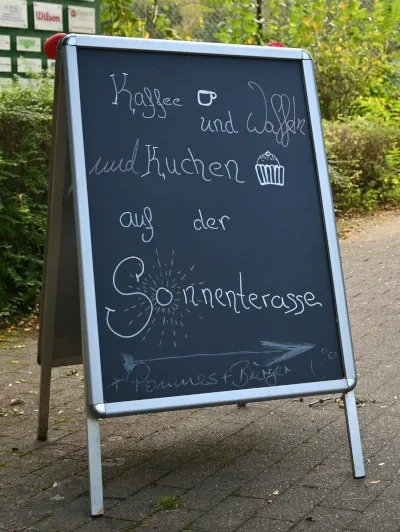 Wilson
Kaffee
und Waffeln
und Kuchen
auf der
Sonnenterasse
+ Pommes + Burger